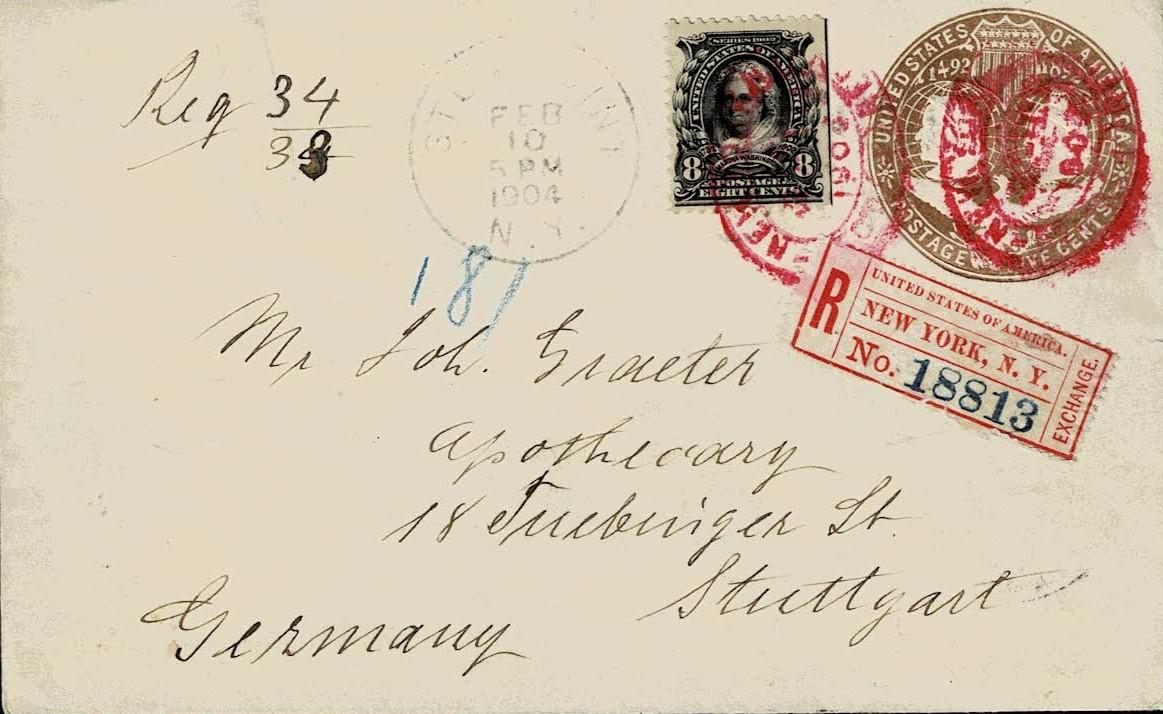 Reg 34
38
FEB
10
5 PM
1904
N.Y.
SERIES 1902
UNITED STATES OF AMERICA
MARTHA WASHINGTON
8 POSTAGE 8
EIGHT CENTS
UNITED STATES OF AMERICA
1492
POSTAGE FIVE CENTS
R
UNITED STATES OF AMERICA.
NEW YORK, N. Y.
No. 18813
EXCHANGE.
181
Mr Joh. Graeter
Apothecary
18 Tuebinger St.
Stuttgart
Germany